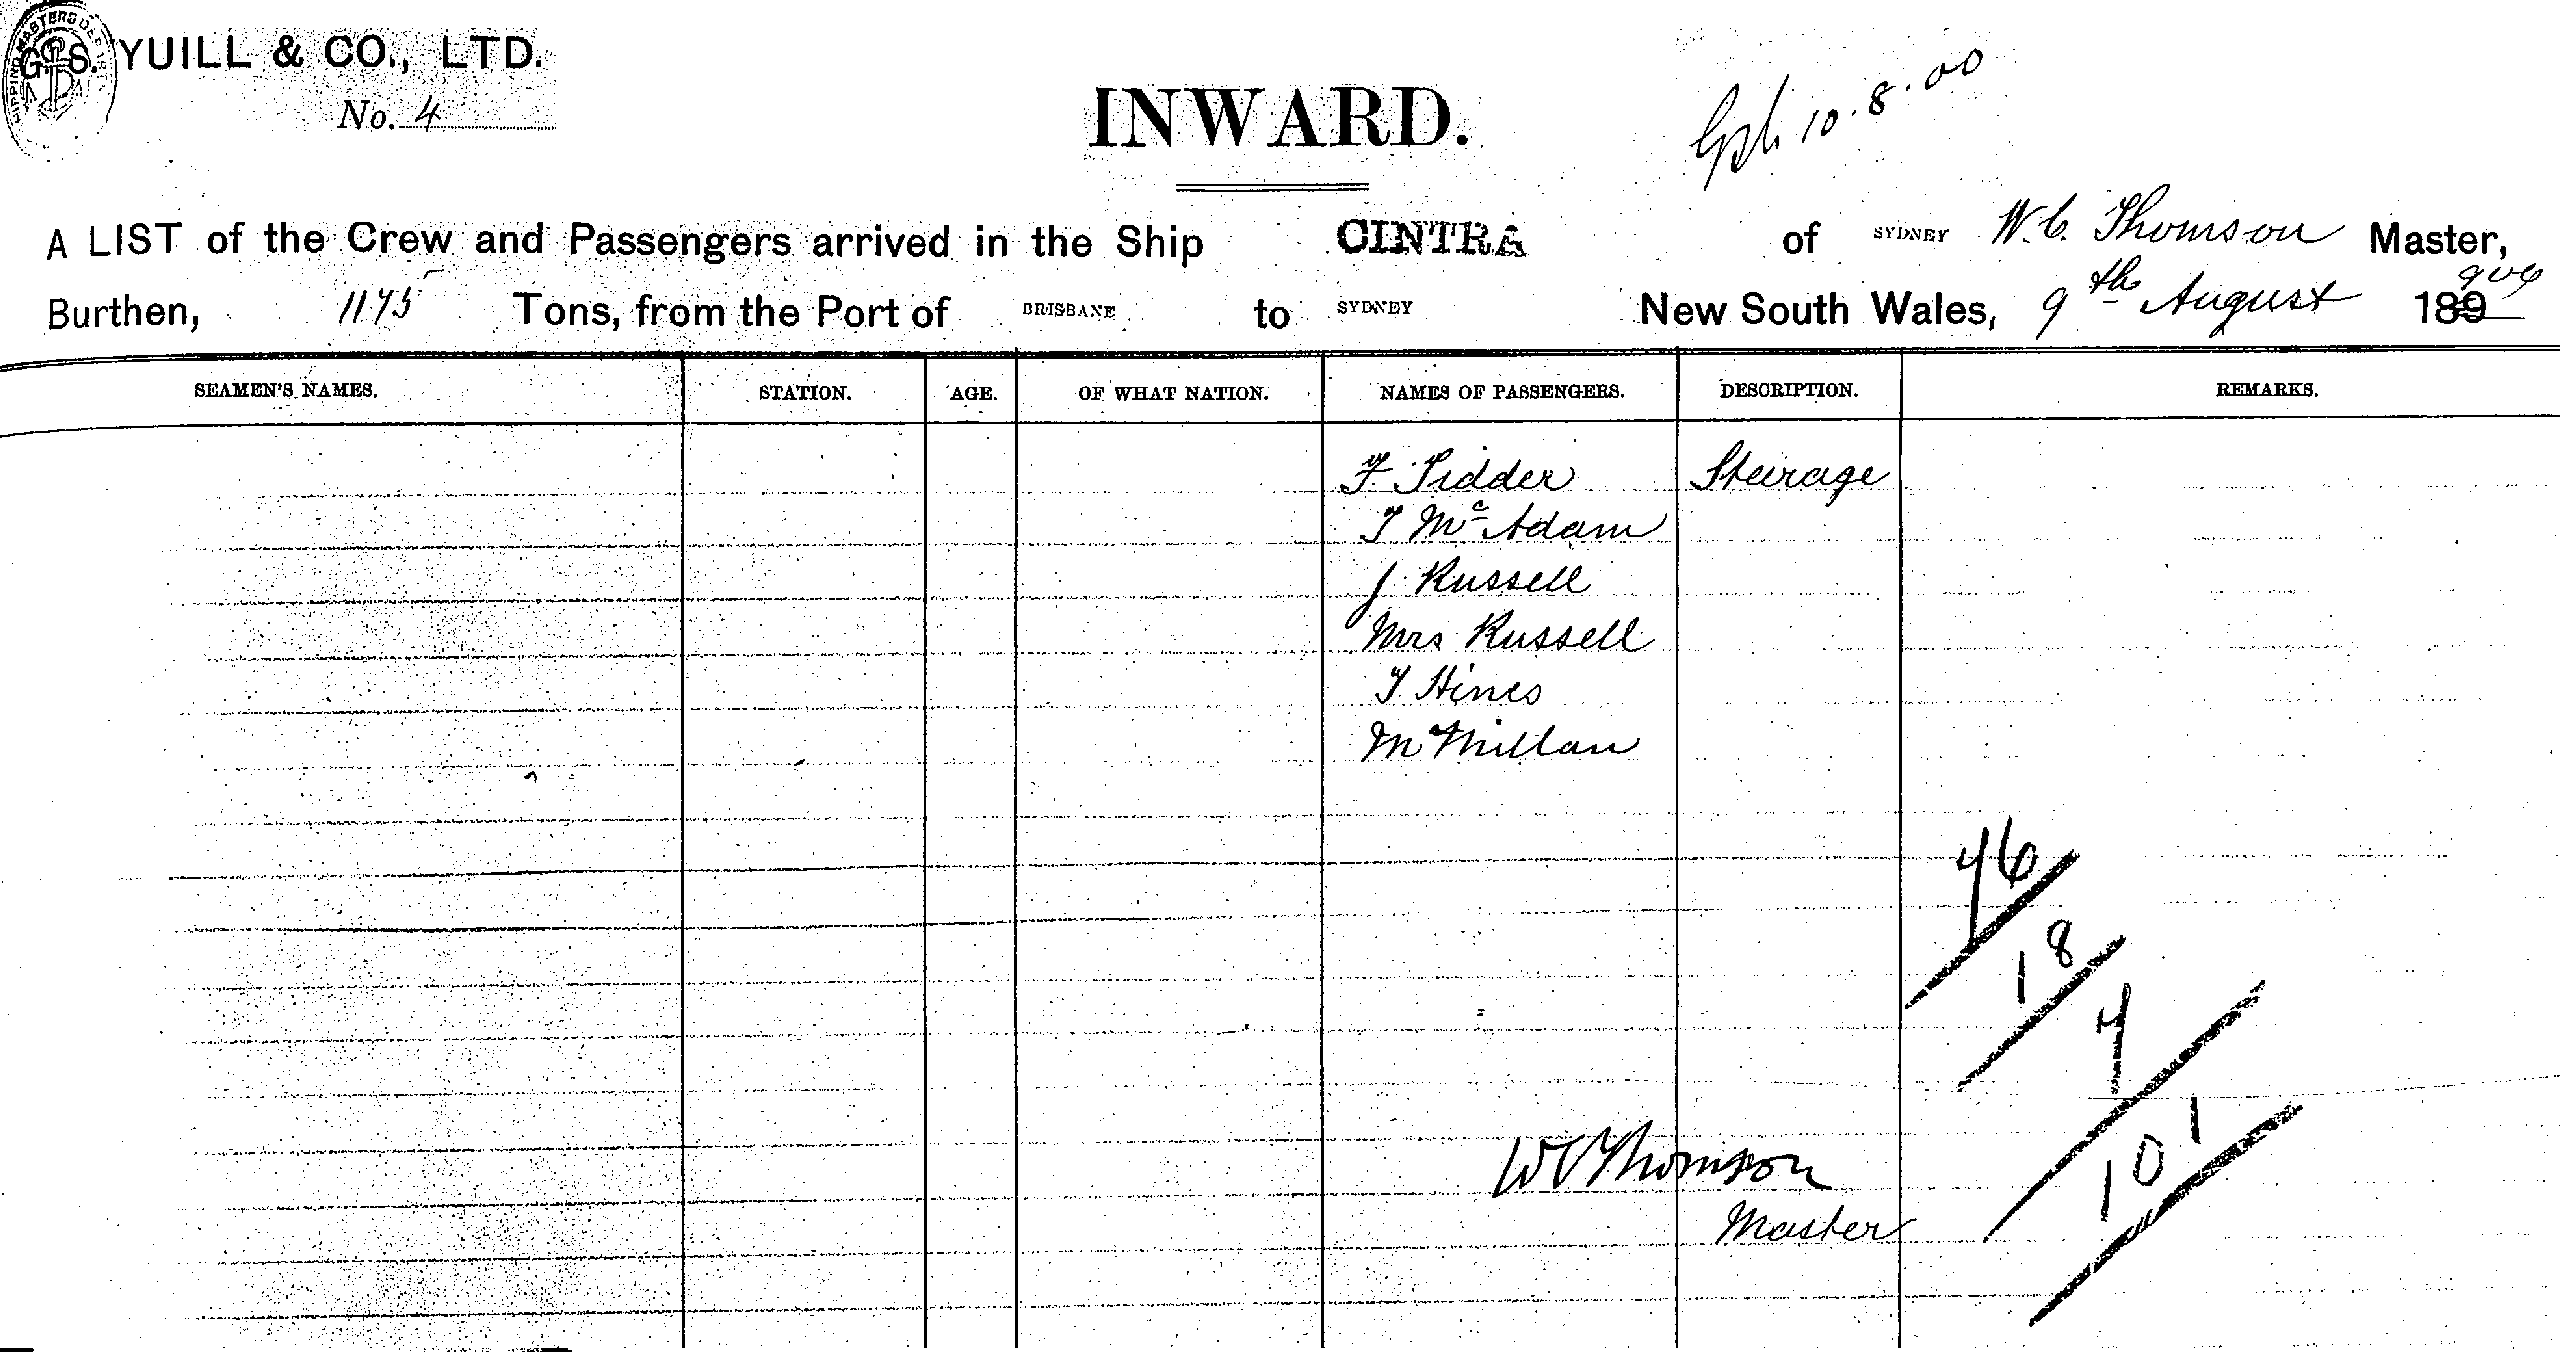 G. S. YUILL & CO., LTD.
No. 4
INWARD.
10.8.00
A LIST of the Crew and Passengers arrived in the Ship CINTRA of SYDNEY W. C. Thomson Master,
Burthen, 1175 Tons, from the Port of BRISBANE to SYDNEY New South Wales, 9th August 189 900
SEAMEN'S NAMES. STATION. AGE. OF WHAT NATION. NAMES OF PASSENGERS. DESCRIPTION. REMARKS.
F Sidder Steirage
T Mc Adam
J Russell
Mrs Russell
T Hines
McMillan
46
18
101
W C Thomson
Master